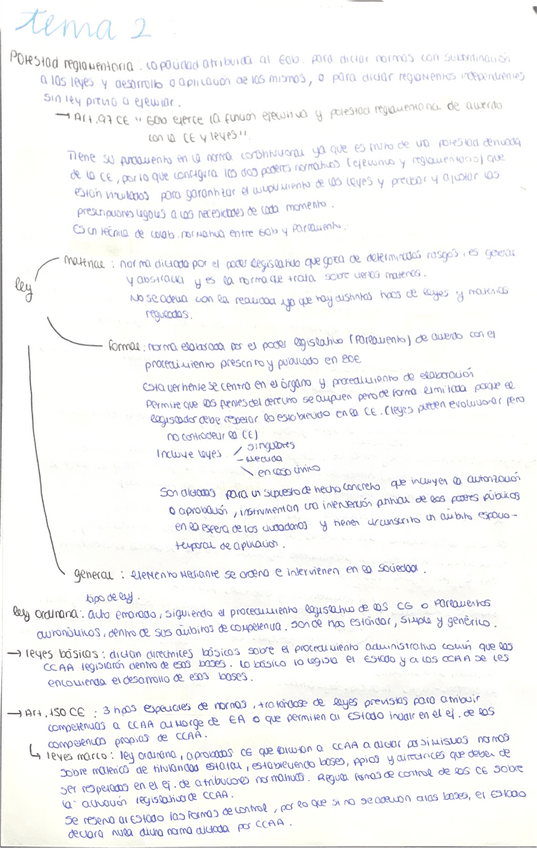 tema 2
Potestad reglamentaria: capacidad atribuida al Gob. para dictar normas con subordinación
a las leyes y desarrollo o aplicación de las mismas, o para dictar reglamentos independientes
sin ley previa a ejecutar.
→ Art. 97 CE "Gob ejerce la función ejecutiva y potestad reglamentaria de acuerdo
con la CE y leyes".
Tiene su fundamento en la norma constitucional ya que es fruto de una potestad derivada
de la CE, por lo que configura los dos poderes normativos (ejecutivo y reglamentario) que
están vinculados para garantizar el cumplimiento de las leyes y precisar y ajustar las
prescripciones legales a las necesidades de cada momento.
Es un técnica de colab. normativa entre Gob y Parlamento.
ley
material: norma dictada por el poder legislativo que goza de determinados rasgos, es general
y abstracta y es la norma que trata sobre varias materias.
No se adecua con la realidad ya que hay distintos tipos de leyes y materias
reguladas.
formal: norma elaborada por el poder legislativo (Parlamento) de acuerdo con el
procedimiento prescrito y publicado en BOE
Esta vertiente se centra en el órgano y procedimiento de elaboración
Permite que las fuentes del derecho se amplíen pero de forma limitada porque el
legislador debe respetar lo establecido en la CE. (leyes pueden evolucionar pero
no contradecir la CE)
Incluye leyes / singulares
- medida
\ en caso único
Son dictadas para un supuesto de hecho concreto que incluyen la autorización
o aprobación, instrumentan una intervención puntual de los poderes públicos
en la esfera de los ciudadanos y tienen circunscrito un ámbito espacio-
temporal de aplicación.
general: elemento mediante se ordena e intervienen en la sociedad.
tipo de ley.
ley ordinaria: acto emanado, siguiendo el procedimiento legislativo de las CG o Parlamentos
autonómicos, dentro de sus ámbitos de competencia. Son de tipo estándar, simple y genérico.
→ leyes básicas: dictan directrices básicas sobre el procedimiento administrativo común que las
CCAA legislarán dentro de esas bases. Lo básico lo legisla el Estado y a las CCAA se les
encomienda el desarrollo de esas bases.
→ Art. 150 CE: 3 tipos especiales de normas, tratándose de leyes previstas para atribuir
competencias a CCAA al margen de EA o que permiten al Estado incidir en el ej. de las
competencias propias de CCAA.
↳ leyes marco: ley ordinaria, aprobadas CG que facultan a CCAA a dictar por sí mismas normas
sobre materias de titularidad estatal, estableciendo bases, ppios y directrices que deben de
ser respetadas en el ej. de atribuciones normativas. Regula formas de control de las CG sobre
la actuación legislativa de CCAA.
Se reserva al Estado las formas de control, por lo que si no se adecuan a las bases, el Estado
declara nula dicha norma dictada por CCAA.